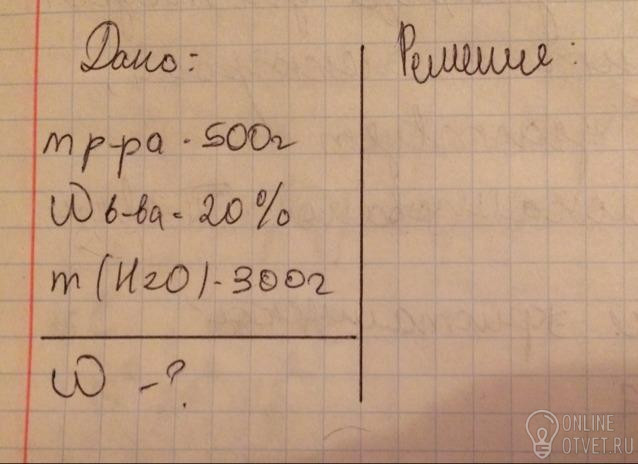 Дано:
Решение:
m р-ра - 500г
W в-ва = 20%
m (H2O) - 300г
W - ?
ONLINE
OTVET.RU